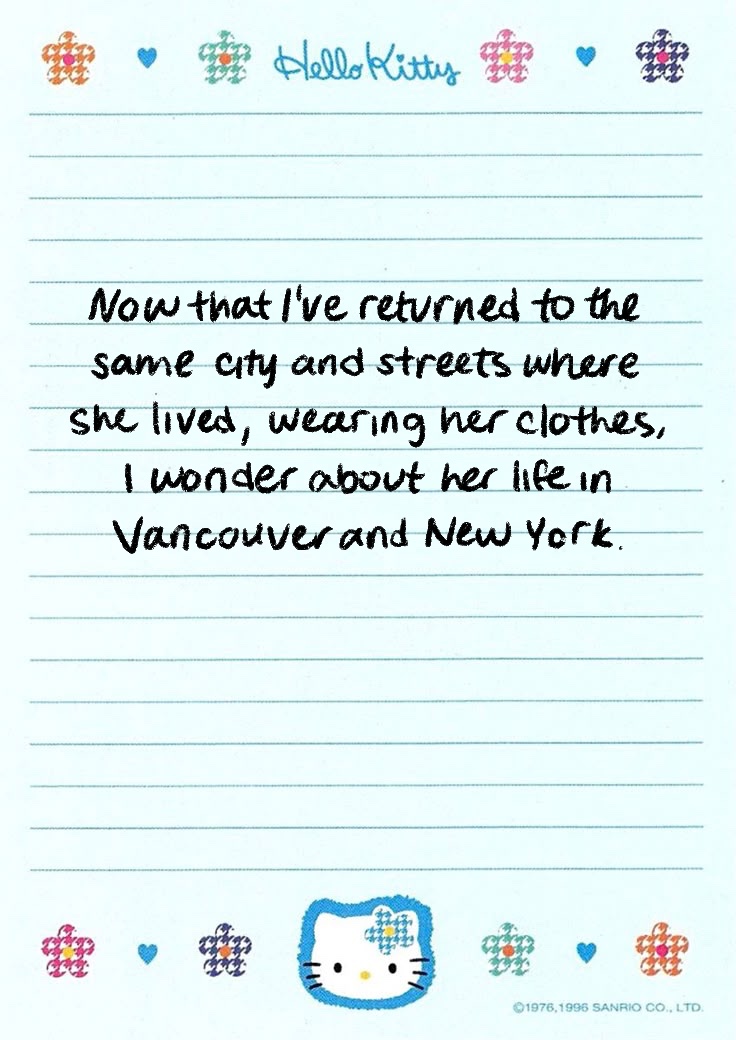 Hello Kitty
Now that I've returned to the
same city and streets where
she lived, wearing her clothes,
I wonder about her life in
Vancouver and New York.
©1976,1996 SANRIO CO., LTD.